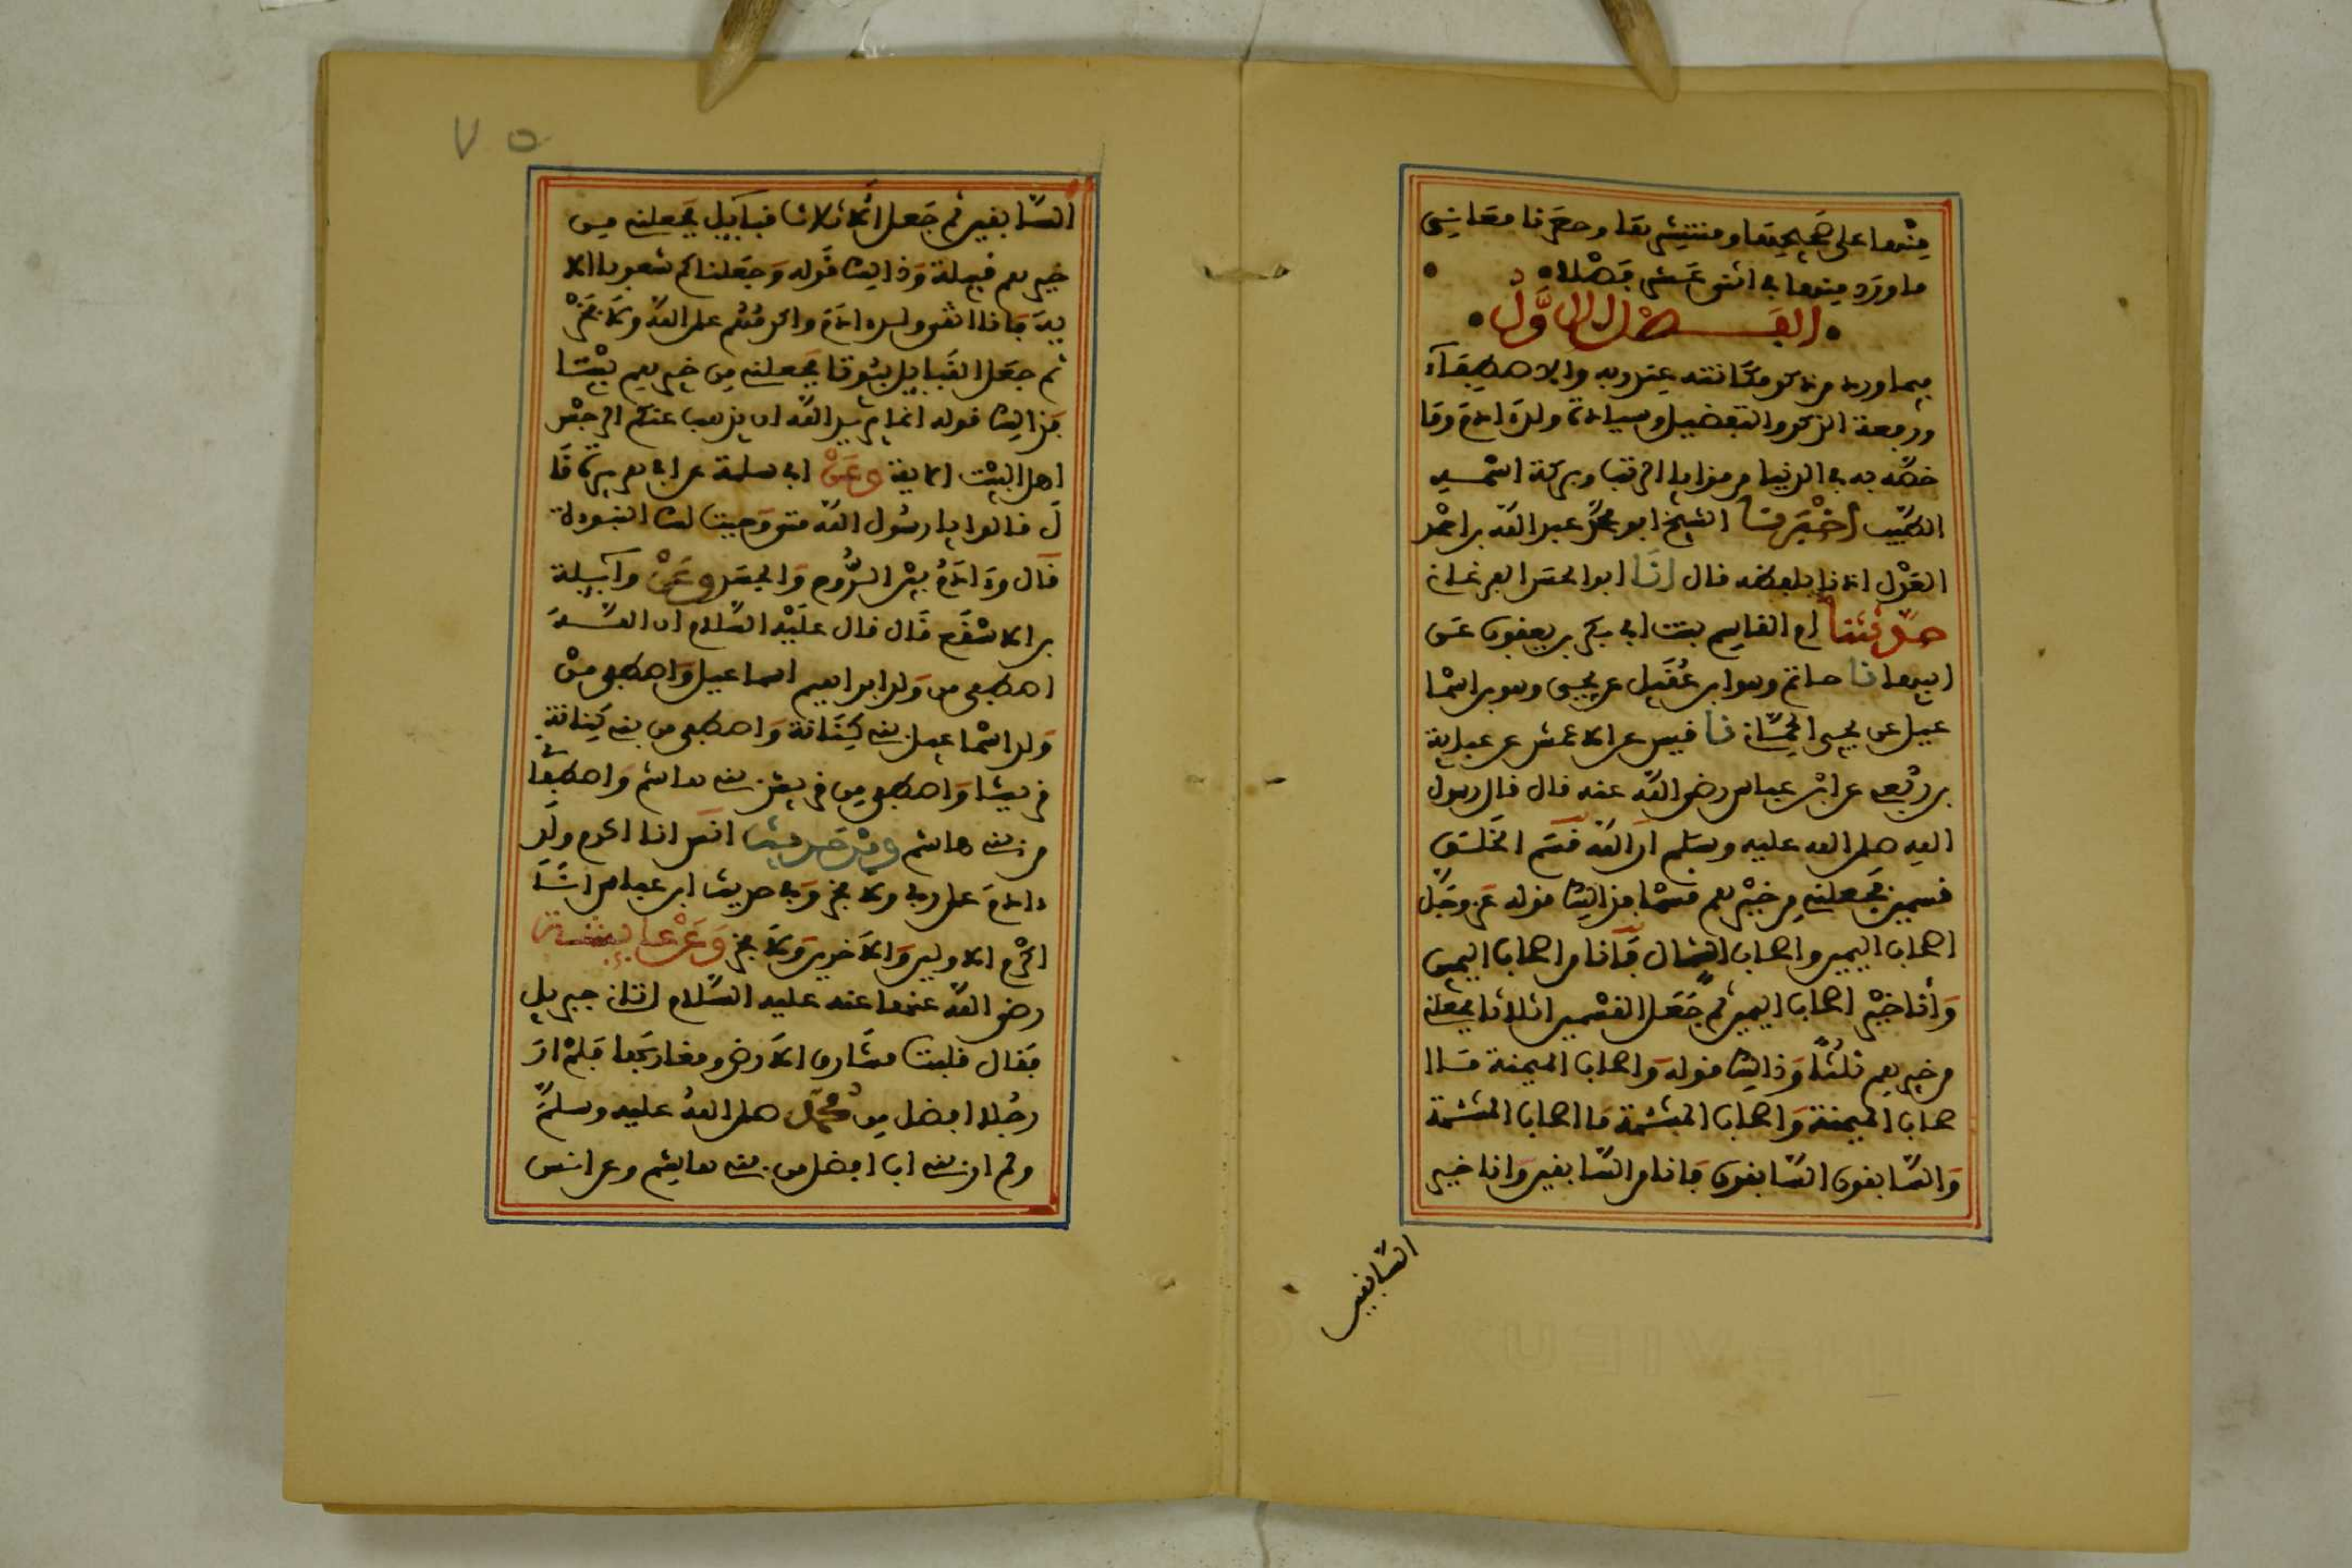 منها على صحيحها ومنتشرها وحصرنا معاني
ما ورد منها في اثني عشر فصلا
الفصل الاول
فيما ورد من ذكر مكانته عند ربه والاصطفاء
ورفعة الذكر والتفضيل وسيادة ولد ادم وما
خصه به في الدنيا من مزايا الرتب وبركة اسمه
الطيب اخبرنا الشيخ ابو محمد عبد الله بن احمد
العدل اذنا بلفظه قال نا ابو الحسن الفرغاني
حدثتنا ام القاسم بنت ابي بكر بن يعقوب عن
ابيها نا حاتم وهو ابن عقيل عن يحيى وهو بن اسما
عيل عن يحيى الحماني نا قيس عن الاعمش عن عباية
بن ربعي عن ابن عباس رضي الله عنه قال قال رسول
الله صلى الله عليه وسلم ان الله قسم الخلق
قسمين فجعلني من خيرهم قسما فذالك قوله عز وجل
اصحاب اليمين واصحاب الشمال فانا من اصحاب اليمين
وانا خير اصحاب اليمين ثم جعل القسمين اثلاثا فجعلني
من خيرهم ثلثا وذالك قوله واصحاب الميمنة ما ا
صحاب الميمنة واصحاب المشئمة ما اصحاب المشئمة
والسابقون السابقون فانا من السابقين وانا خير
السابقين
٧٥
السابقين ثم جعل الاثلاث قبايل فجعلني من
خيرهم قبيلة وذالك قوله وجعلناكم شعوبا الا
ية فانا اتقى ولد ادم واكرمهم على الله ولا فخر
ثم جعل القبايل بيوتا فجعلني من خيرهم بيتا
فذالك قوله انما يريد الله ان يذهب عنكم الرجس
اهل البيت الاية وعن ابي سلمة عن ابي هريرة قا
ل قالوا يا رسول الله متى وجبت لك النبوءة
قال وءادم بين الروح والجسد وعن واثلة
بن الاسقع قال قال عليه السلام ان الله
اصطفى من ولد ابراهيم اسماعيل واصطفى من
ولد اسماعيل بني كنانة واصطفى من بني كنانة
قريشا واصطفى من قريش بني هاشم واصطفا
من بني هاشم ومن حديث انس انا اكرم ولد
ءادم على ربي ولا فخر وفي حديث ابن عباس انا
اكرم الاولين والاخرين ولا فخر وعن عايشة
رضي الله عنها عنه عليه السلام اتاني جبريل
فقال قلبت مشارق الارض ومغاربها فلم ار
رجلا افضل من محمد صلى الله عليه وسلم
ولم ار بني اب افضل من بني هاشم وعن انس